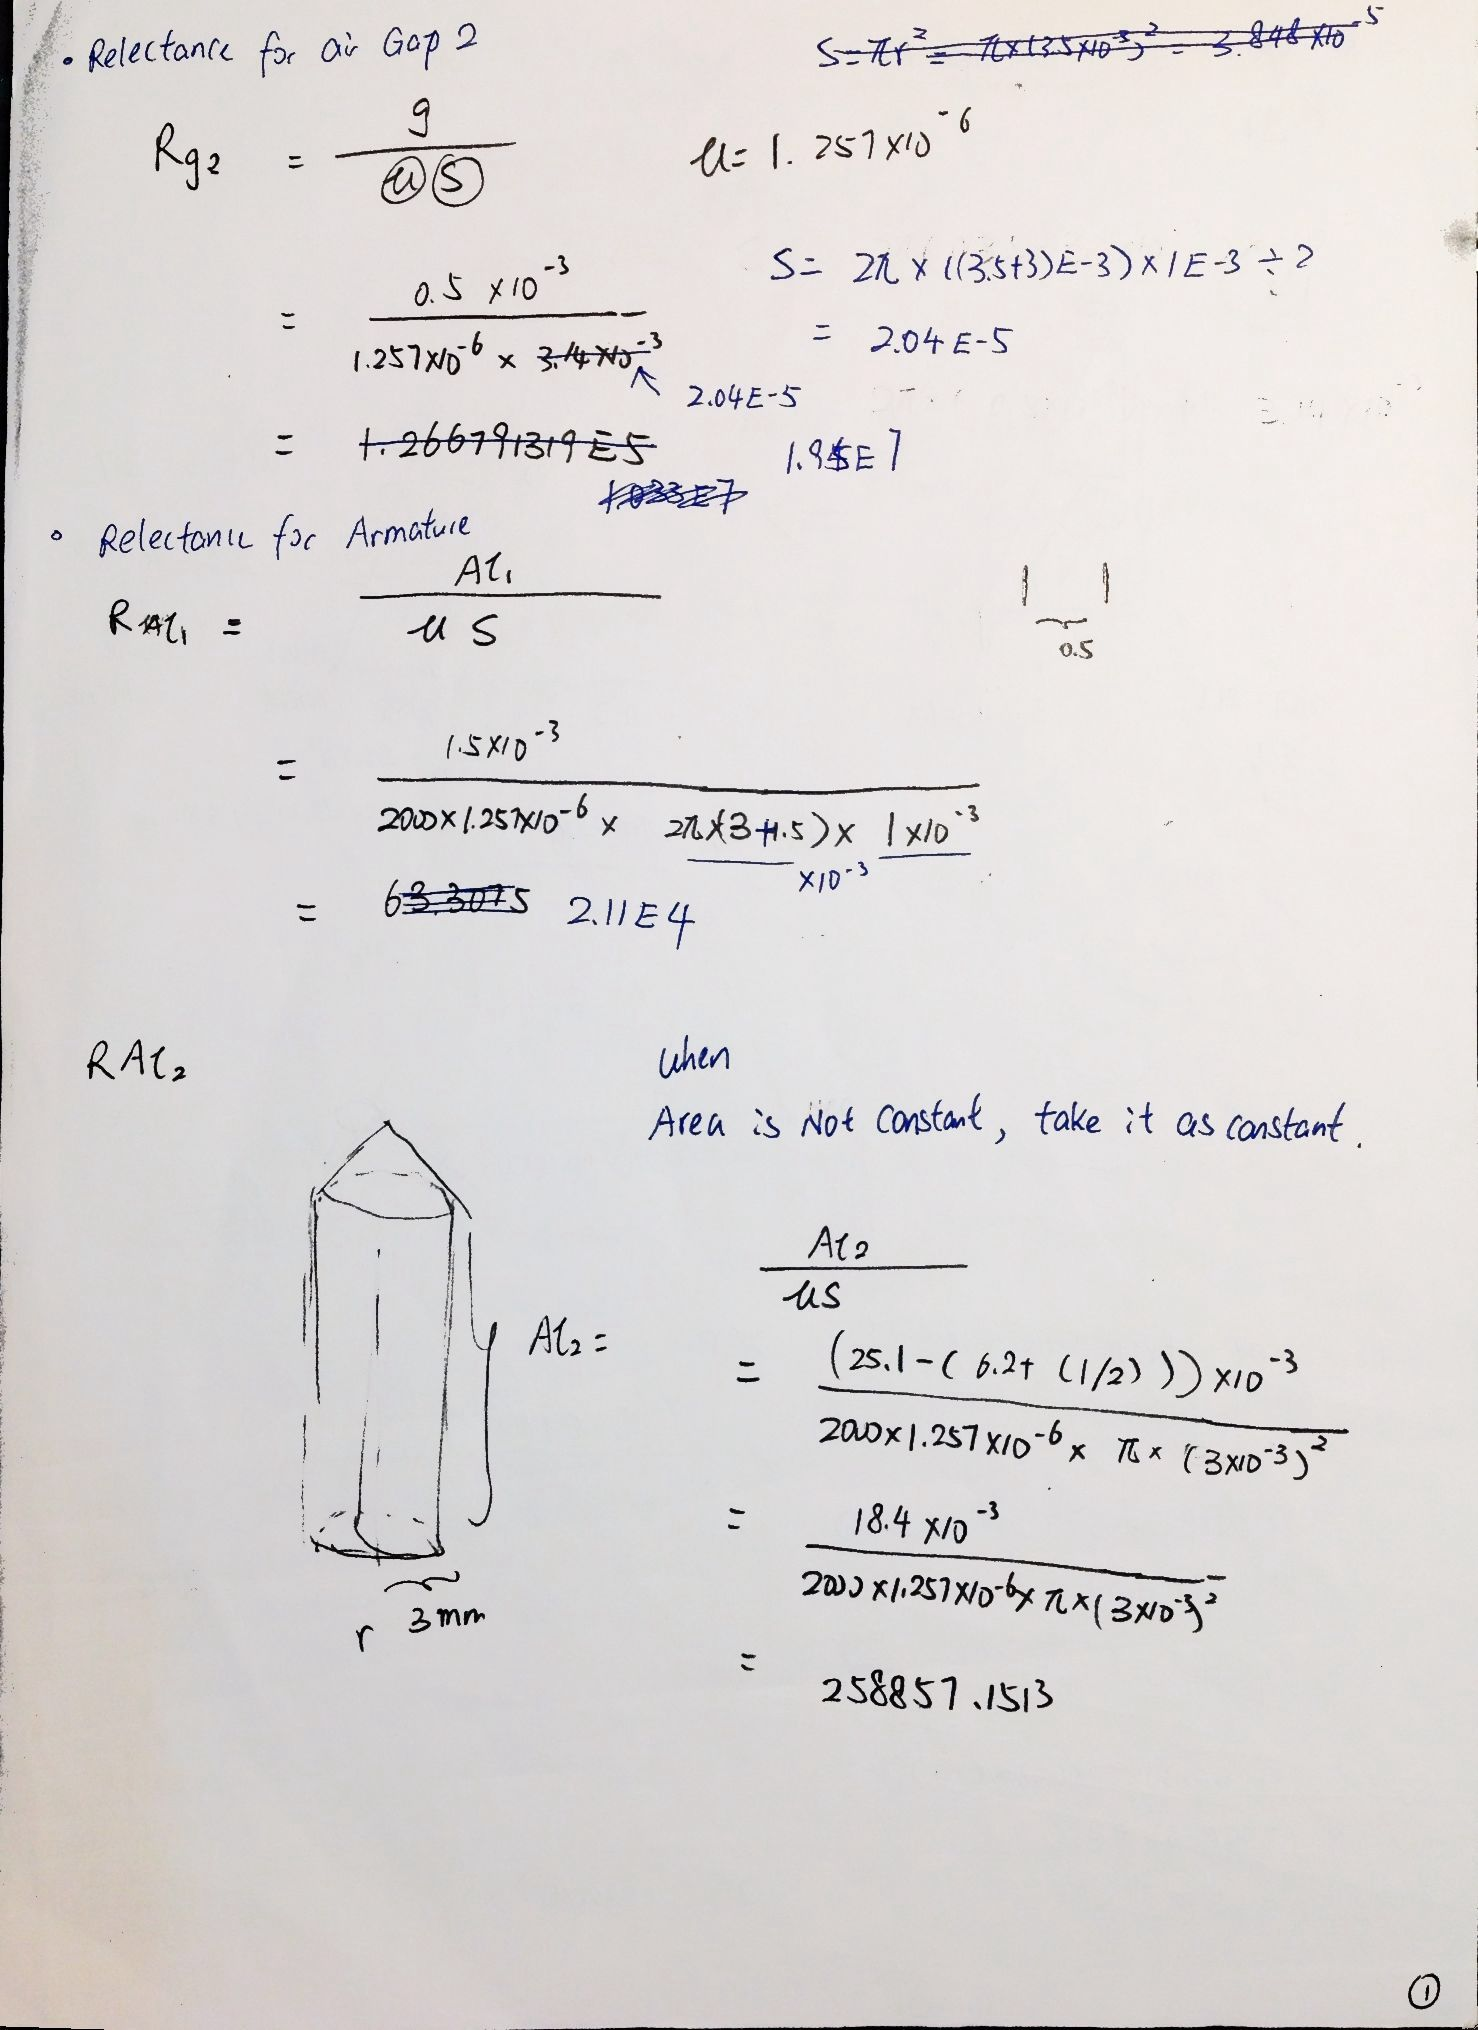 • Relectance for air Gap 2
S = πr² = π×(3.5×10⁻³)² = 3.848×10⁻⁵
Rg₂ = g / u S
u = 1.257×10⁻⁶
S = 2π × ((3.5+3)E-3) × 1E-3 ÷ 2
= 2.04E-5
= 0.5 ×10⁻³ / 1.257×10⁻⁶ × 3.14×10⁻³
2.04E-5
= 1.266791319E5
1.95E7
1.033E7
• Relectance for Armature
RAl₁ = Al₁ / u S
0.5
= 1.5×10⁻³ / 2000×1.257×10⁻⁶ × 2π×(3+1.5)× 1×10⁻³
×10⁻³
= 63.3075 2.11E4
RAl₂
when
Area is Not Constant, take it as constant.
Al₂ =
r 3mm
Al₂ / us
= (25.1-(6.2+(1/2)))×10⁻³ / 2000×1.257×10⁻⁶ × π × (3×10⁻³)²
= 18.4×10⁻³ / 2000×1.257×10⁻⁶ × π×(3×10⁻³)²
= 258857.1513
①